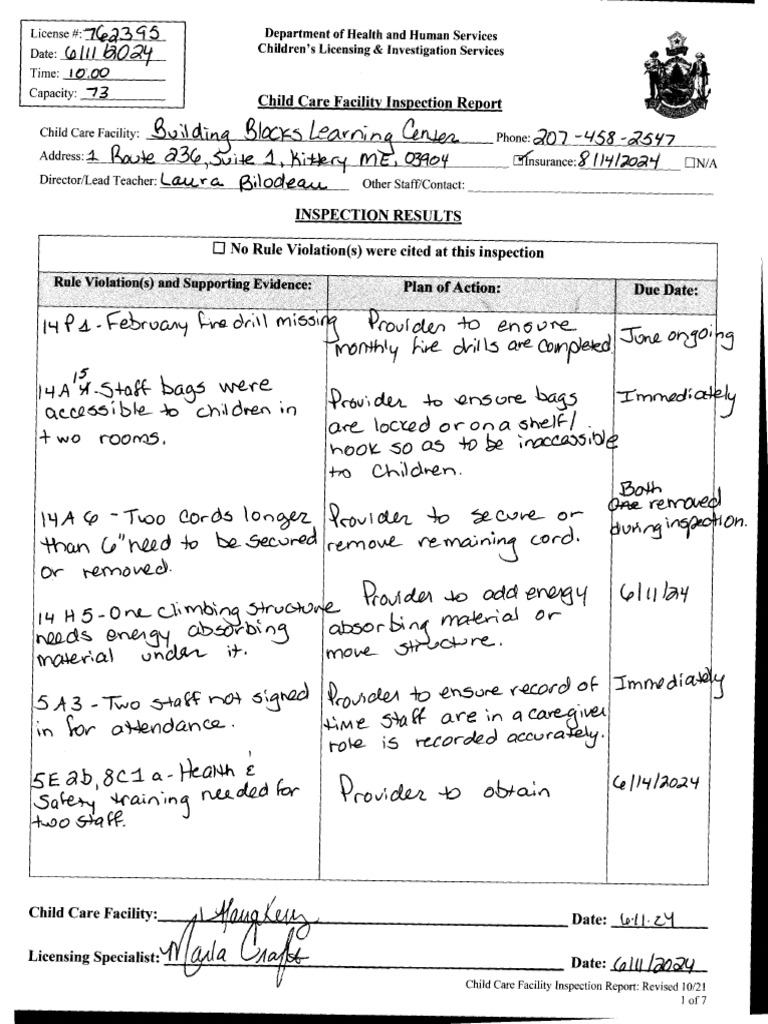 License #: 762395
Date: 6/11/2024
Time: 10:00
Capacity: 73
Department of Health and Human Services
Children's Licensing & Investigation Services
Child Care Facility Inspection Report
Child Care Facility: Building Blocks Learning Center Phone: 207-458-2547
Address: 1 Route 236, Suite 1, Kittery ME, 03904 ☑Insurance: 8/14/2024 ☐N/A
Director/Lead Teacher: Laura Bilodeau Other Staff/Contact:
INSPECTION RESULTS
☐ No Rule Violation(s) were cited at this inspection
Rule Violation(s) and Supporting Evidence: Plan of Action: Due Date:
14 P 1 - February fire drill missing
Provider to ensure
monthly fire drills are completed
June ongoing
14 A 15 - Staff bags were
accessible to children in
two rooms.
Provider to ensure bags
are locked or on a shelf/
hook so as to be inaccessible
to children.
Immediately
14 A 6 - Two cords longer
than 6" need to be secured
or removed.
Provider to secure or
remove remaining cord.
Both
One removed
during inspection.
14 H 5 - One climbing structure
needs energy absorbing
material under it.
Provider to add energy
absorbing material or
move structure.
6/11/24
5 A 3 - Two staff not signed
in for attendance.
Provider to ensure record of
time staff are in a caregiver
role is recorded accurately.
Immediately
5E2b, 8C1a - Health &
Safety training needed for
two staff.
Provider to obtain
6/14/2024
Child Care Facility: Date: 6-11-24
Licensing Specialist: Marla Date: 6/11/2024
Child Care Facility Inspection Report: Revised 10/21
1 of 7